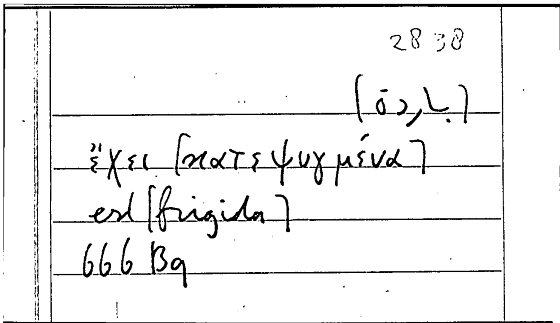 2838
ἔχει [κατεψυγμένα]
est [frigida]
666 B9